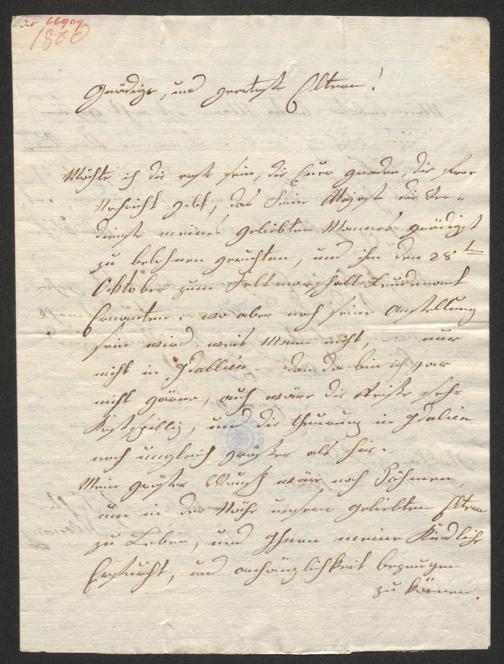 66909
1800
Gnädige, und geerteste Eltern!
Möchte ich die erste sein, die Euer Gnaden, die frohe
Nachricht gibt, das Seine Majest die Ver-
dienste meines geliebten Mannes gnädigst
zu belohnen geruhten, und ihn den 28ten
Oktober zum Feltmarschall Leudenant
Ernanten. wo aber noch seine Anstellung
sein wird, weis Mann nicht, nur
nicht in Idallien. dan da bin ich gar
nicht gärne, auch wäre die Reise sehr
Kostspillig, und die theurung in Idalien
noch ungleich gröser als hir.
Mein gröster Wunsch wär nach Böhmen,
um in der Nähe unserer geliebten Eltern
zu Leben, und Ihnen meine Kindliche
Erfurcht, und anhänglichkeit bezeugen
zu können.